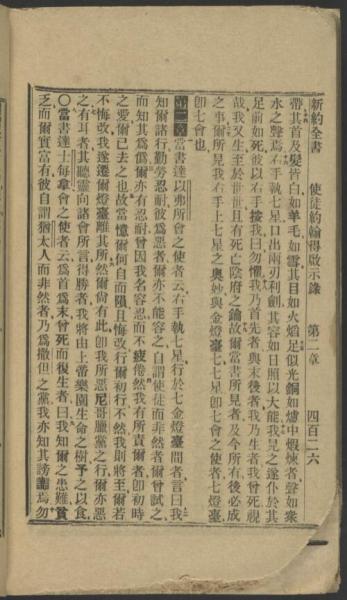 新約全書　使徒約翰得啟示錄　第二章　四百二六
帶其首及髮皆白如羊毛如雪其目如火熖足似光銅如爐中煆煉者聲如衆
水之聲焉右手執七星口出兩刃利劍其容如日照以大能我見之遂仆於其
足前如死彼以右手按我曰勿懼我乃首先者與末後者我乃生者我曾死視
哉我又生至於世世且有死亡陰府之鑰故爾當書所見者及今所有後必成
之事爾所見我右手上七星之奧妙與金燈臺七七星即七會之使者七燈臺
即七會也
第二章當書達以弗所會之使者云右手執七星行於七金燈臺間者言曰我
知爾諸行勤勞忍耐彼爲惡者爾亦不能容之自謂使徒而非然者爾曾試之
而知其爲僞爾亦有忍耐曾因我名容忍而不疲倦然我有所責爾者即初時
之愛爾已去之也故當憶爾何自而隕且悔改行爾初行不然我則將至爾若
不悔改我遂遷爾燈臺離其所然爾尚有此即我所惡尼哥臘黨之行爾亦惡
之有耳者其聽靈向諸會所言得勝者我將由上帝樂園生命之樹予之以食
〇當書達士每拿會之使者云爲首爲末曾死而復生者曰我知爾之患難貧
乏而爾實富有彼自謂猶太人而非然者乃爲撒但之黨我亦知其謗讟焉勿